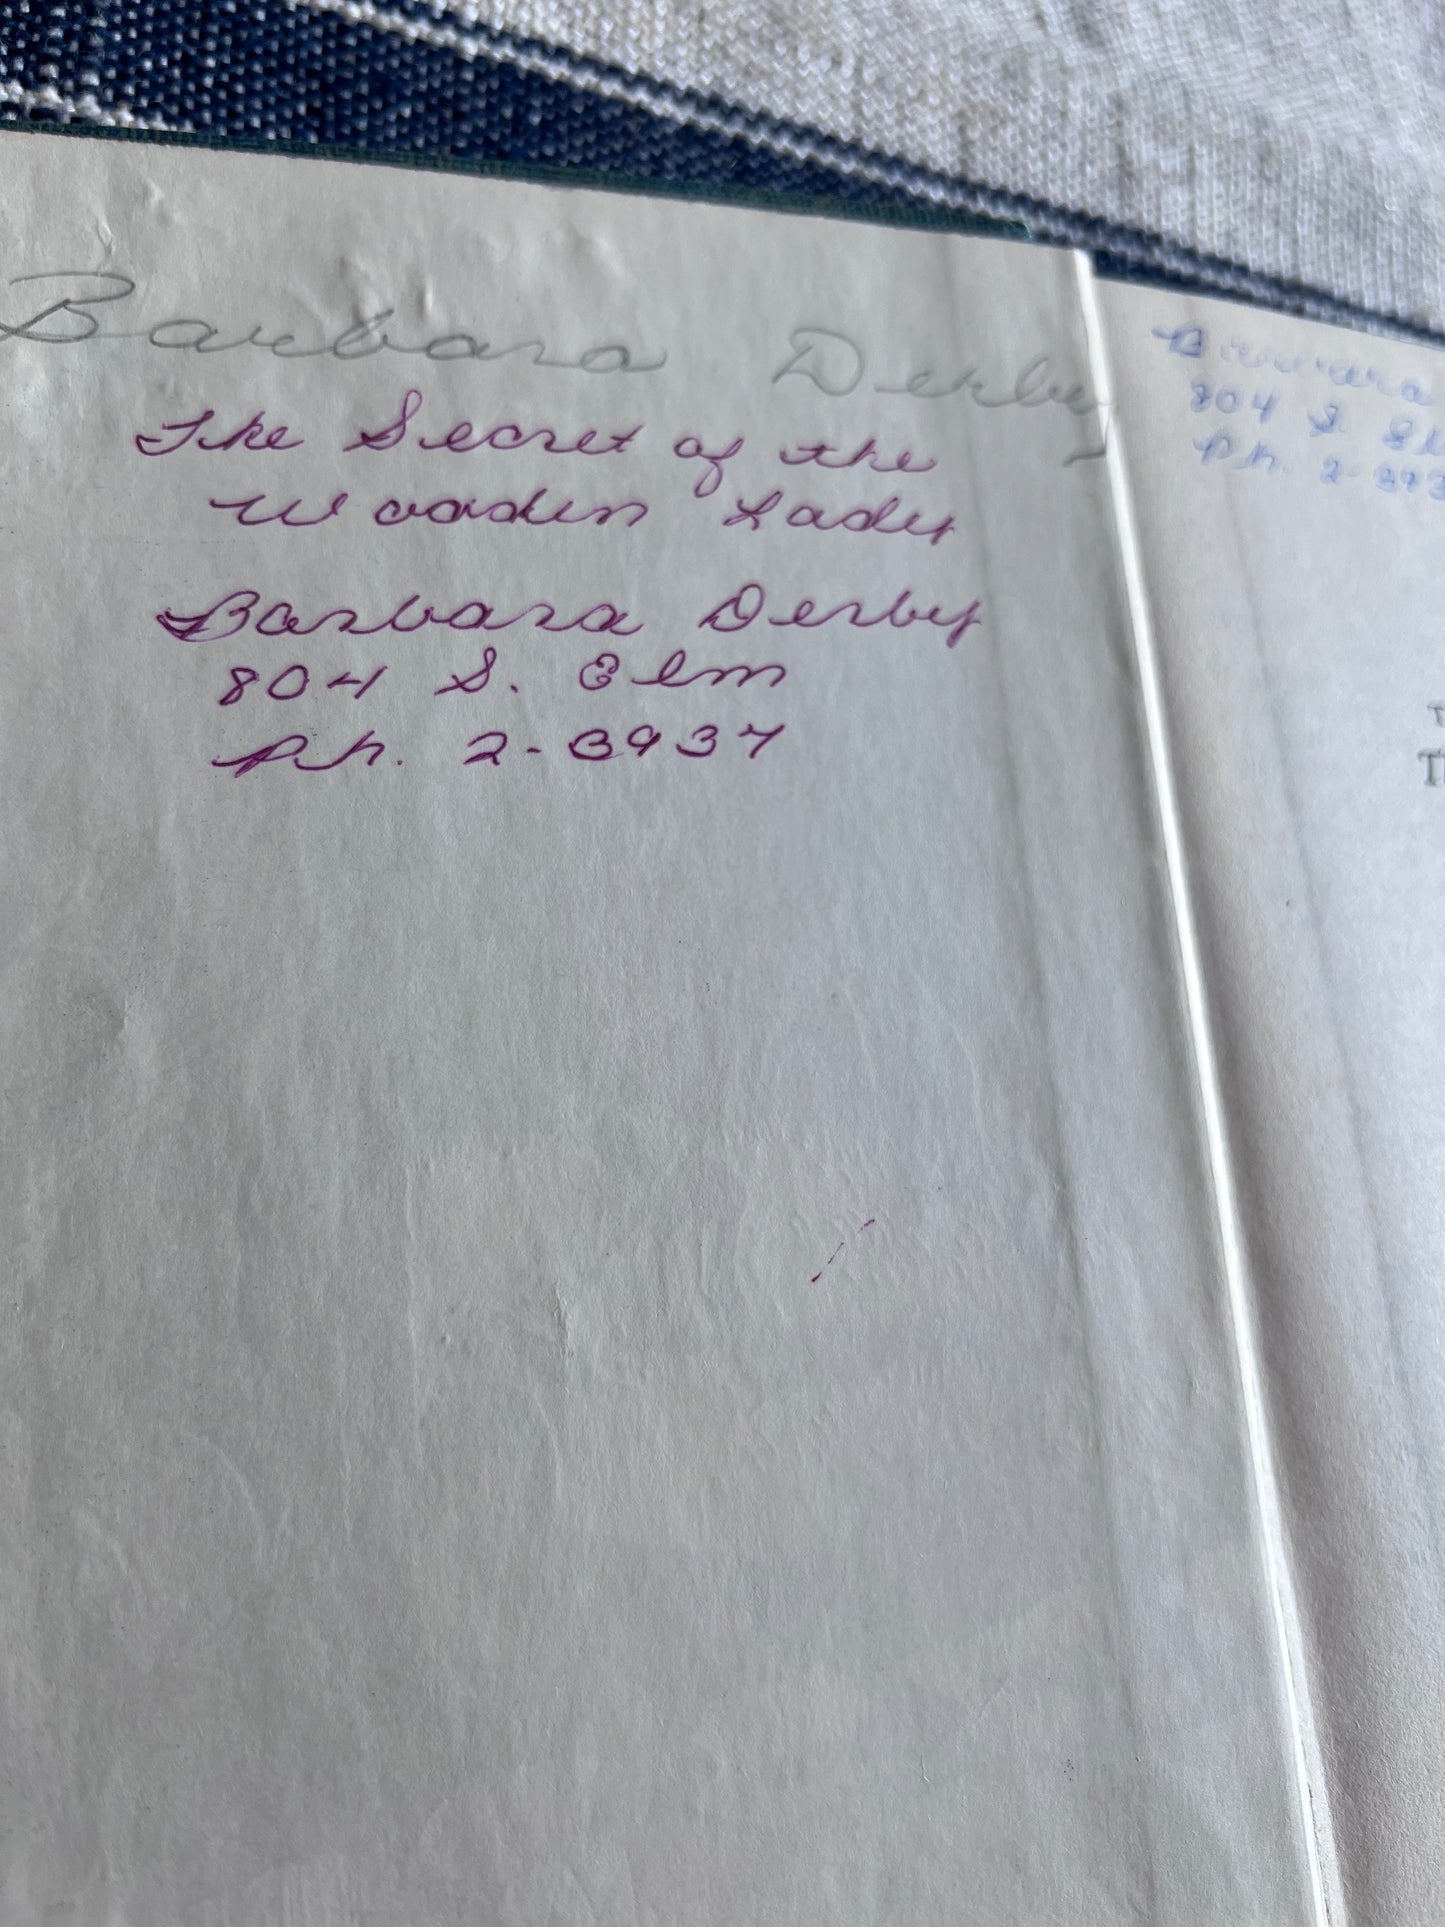 Barbara Derby
The Secret of the
Wooden Lady
Barbara Derby
804 S. Elm
Ph. 2-3937
804 S.
Ph. 2-393